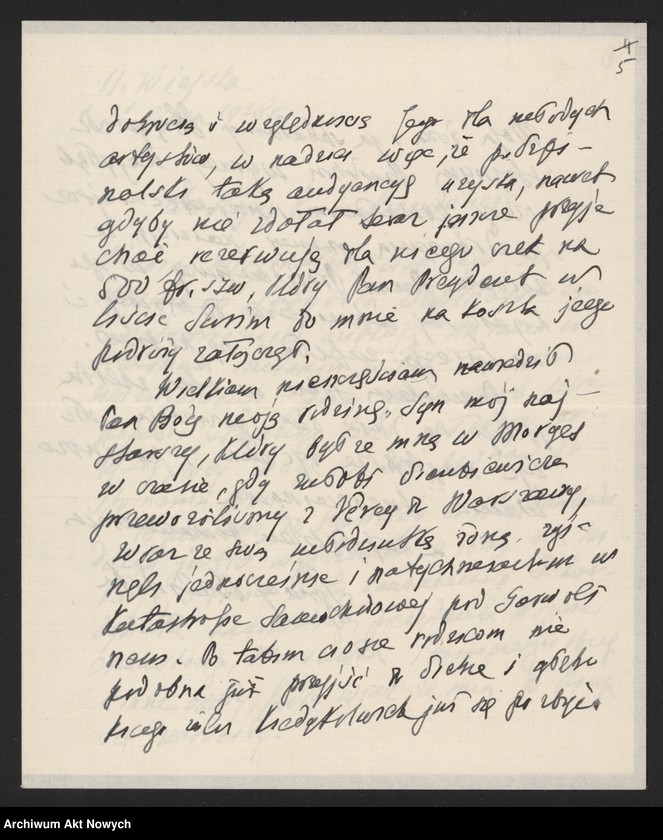 4/5
dobrocią i względnością Jego dla młodych
artystów, w nadziei więc, że p.
taką audyencyę uzyska, nawet
gdyby nie zdołał teraz jeszcze przyje
chać rezerwuję dla niego czek na
500 fr. szw, który Pan Prezydent w
liście Swoim do mnie na koszta jego
podróży załączył.
Wielkiem nieszczęściem nawiedził
Pan Bóg moją rodzinę. Syn mój naj-
starszy, który był ze mną w Morges
w czasie, gdy zwłoki Sienkiewicza
przewoziliśmy z Vevey do Warszawy,
wraz ze swą młodziutką żoną zgi-
nęli jednocześnie i natychmiastowo w
katastrofie samochodowej pod Garwoli
nem. Po takim ciosie rodzicom nie
podobna już przyjść do siebie i
już się po zbyć